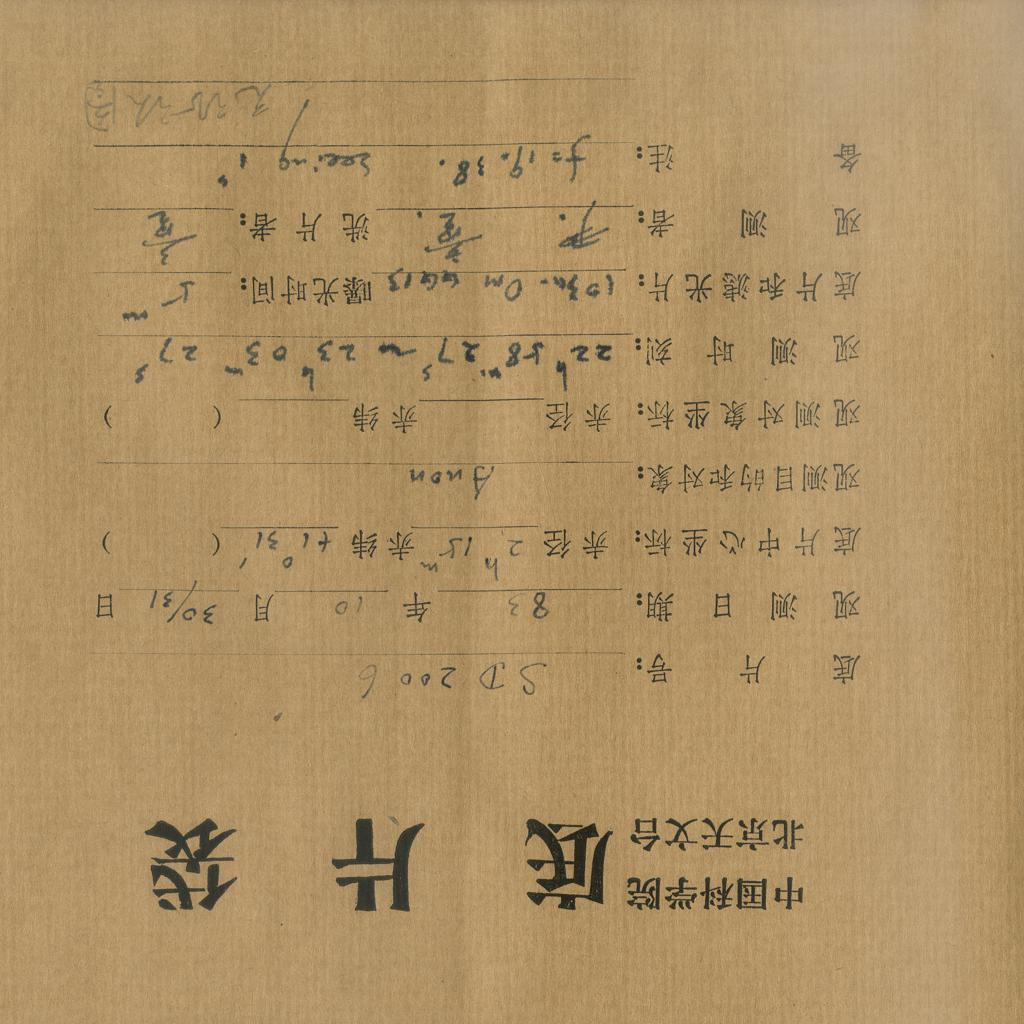 中国科学院
北京天文台
底片袋
底片号: SD 2006
观测日期: 83 年 10 月 30/31 日
底片中心坐标: 赤径 2h 15m 赤纬 +1°31′ ( )
观测目的和对象: Anon
观测对象坐标: 赤径 赤纬 ( )
观测时刻: 22h 58m 27s ~ 23h 03m 27s
底片和滤光片: 103a-O m GG13 曝光时间: 5m
观测者: 洗片者:
备注: f=19.38. Seeing 1